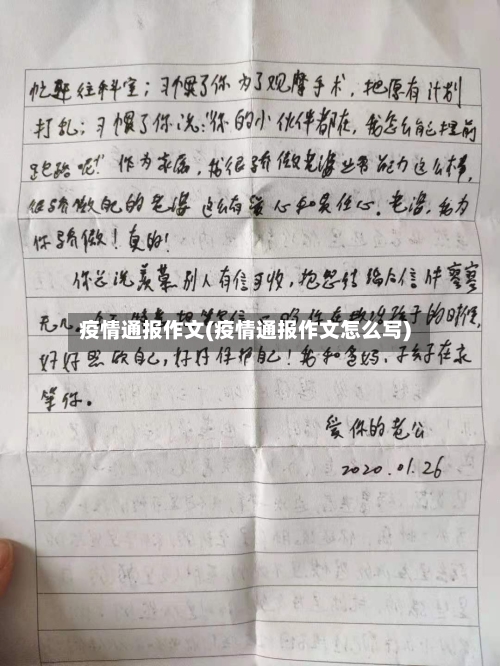 忙赶往科室；习惯了你为了观摩手术，把原有计划
打乱；习惯了你说："你的小伙伴都在，我怎么自己提前
跑路呢！"作为家属，我很骄傲老婆业务能力这么棒，
很骄傲自己的老婆这么有爱心和责任心。老婆，我为
你骄傲！真的！
你总说羡慕别人有信可收，抱怨结婚后信件寥寥
无几。
疫情通报作文(疫情通报作文怎么写)
的时候，
好好照顾自己，好好保护自己！我和爸妈、孩子在家
等你。
爱你的老公
2020.01.26